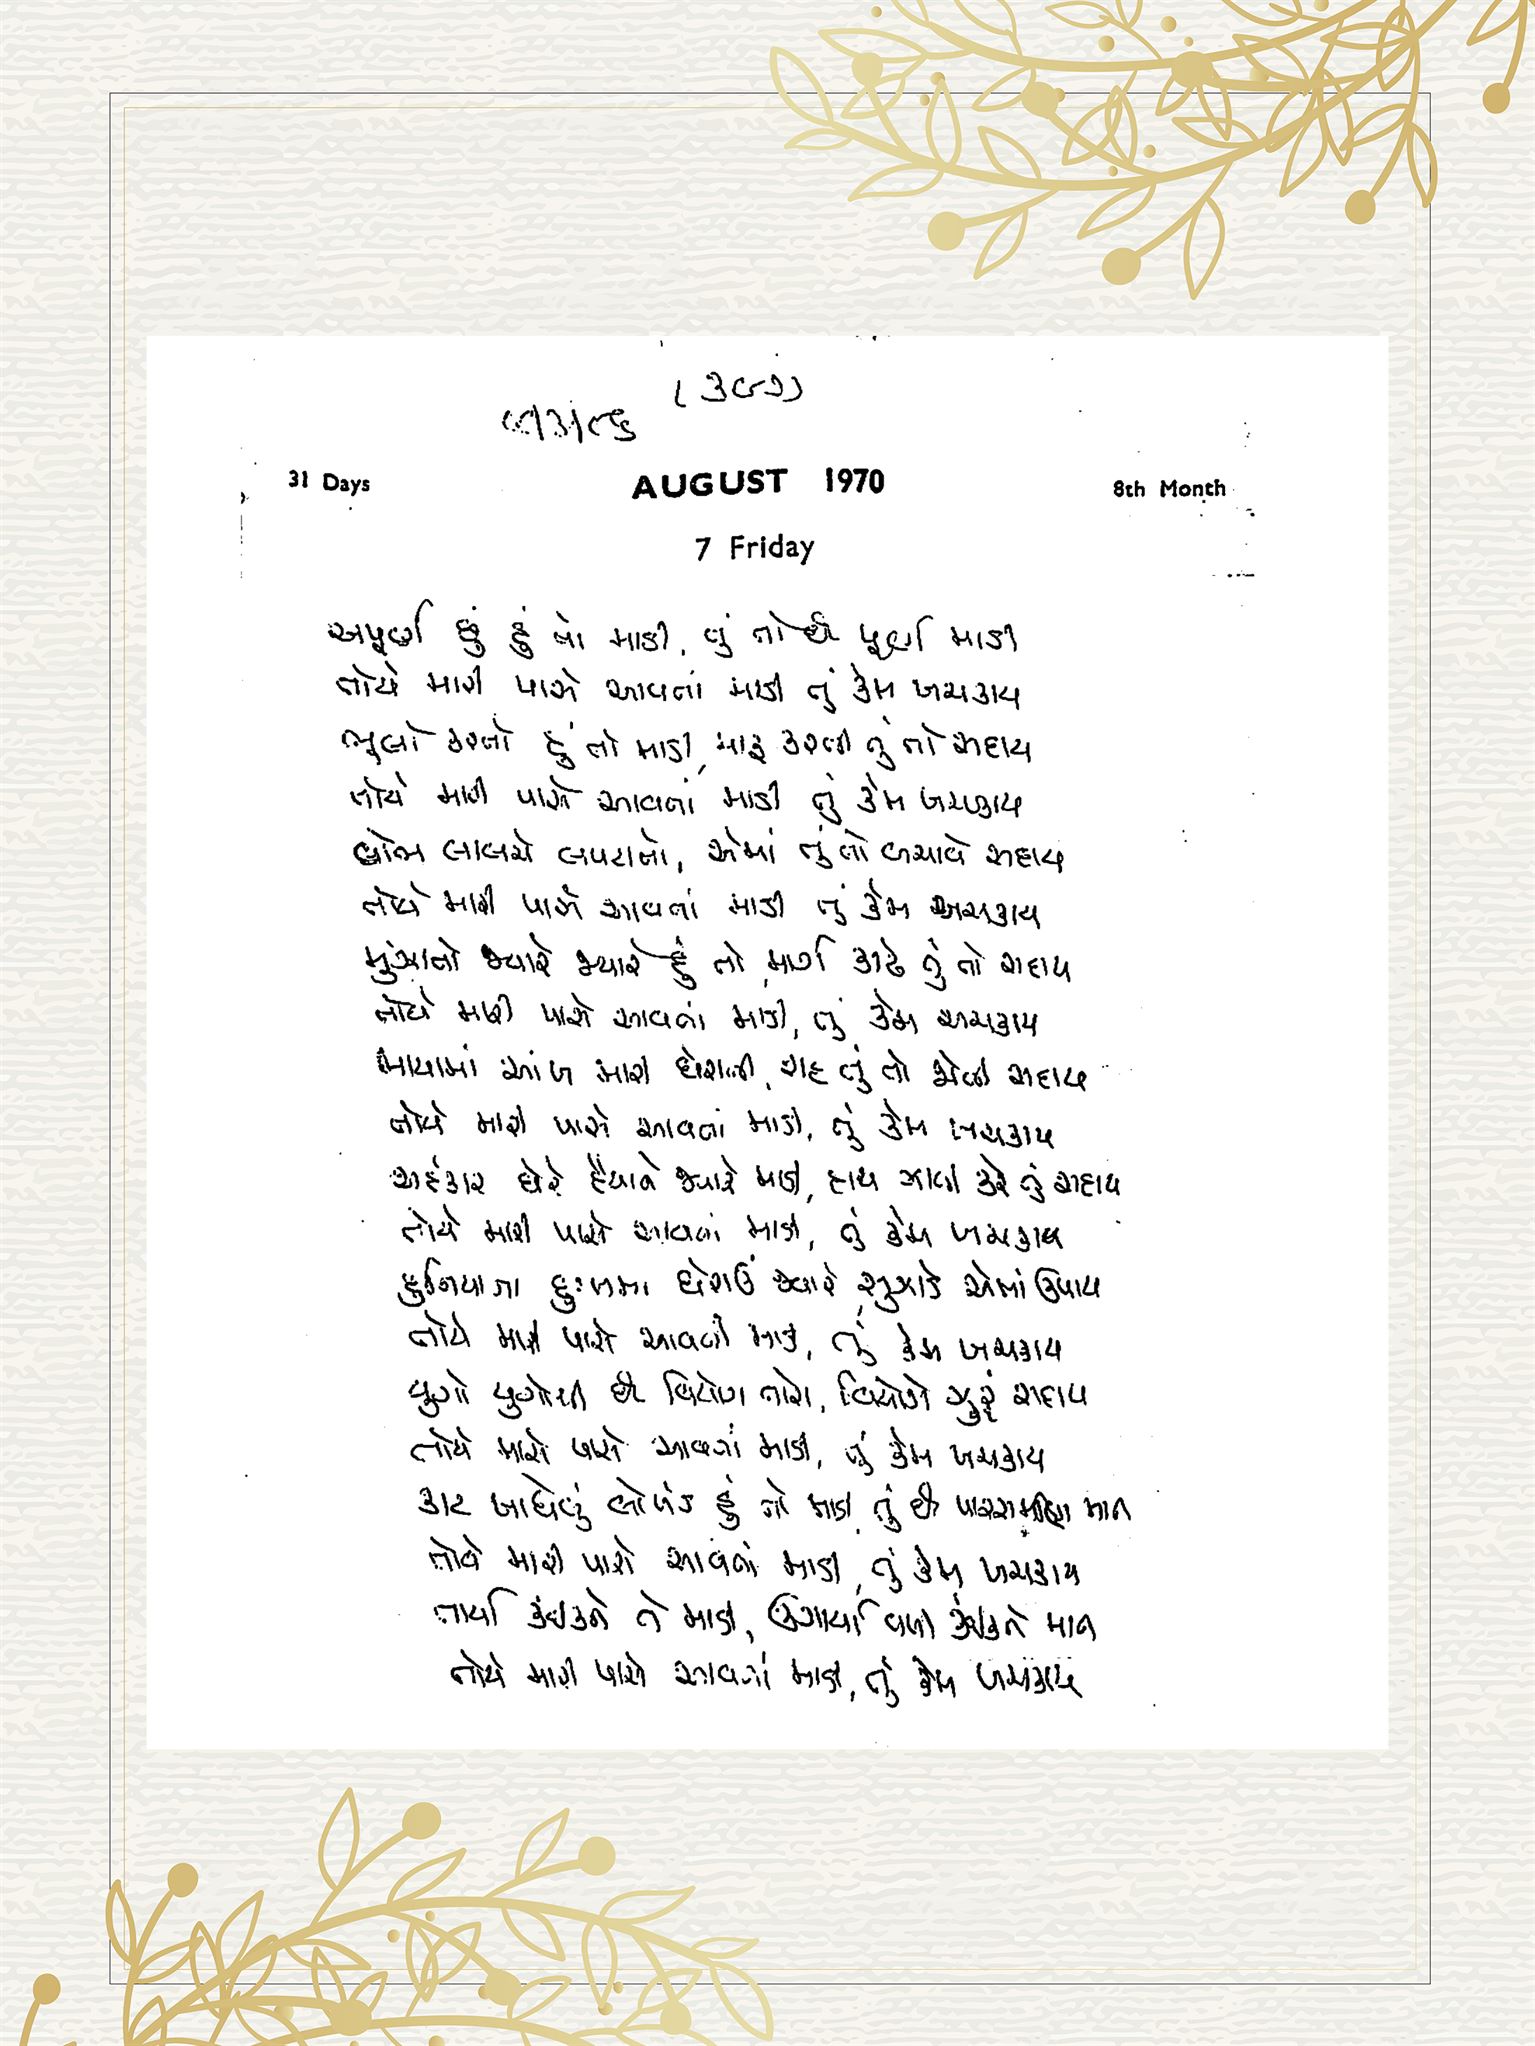 (૩૯૭)
૯/૩/૮૬
31 Days AUGUST 1970 8th Month
7 Friday
અપૂર્ણ છું હું તો માડી, તું તો છે પૂર્ણ માડી
તોયે મારી પાસે આવતાં માડી તું કેમ ખચકાય
ભૂલો કરતો હું તો માડી, માફ કરતી તું તો સદાય
તોયે મારી પાસે આવતાં માડી તું કેમ ખચકાય
લોભ લાલચે લપટાતો, એમાં તું તો બચાવે સદાય
તોયે મારી પાસે આવતાં માડી તું કેમ ખચકાય
મુંઝાતો જ્યારે જ્યારે હું તો, માર્ગ કાઢે તું તો સદાય
તોયે મારી પાસે આવતાં માડી, તું કેમ ખચકાય
માયામાં આંખ મારી ઘેરાતી, રાહ તું તો જોતી સદાય
તોયે મારી પાસે આવતાં માડી, તું કેમ ખચકાય
અહંકાર ઘેરે હૈયાને જ્યારે માડી, હાથ ઝાલી કરે તું સહાય
તોયે મારી પાસે આવતાં માડી, તું કેમ ખચકાય
દુનિયાના દુઃખમાં ઘેરાઉં જ્યારે, સુઝાડે એમાં ઉપાય
તોયે મારી પાસે આવતાં માડી, તું કેમ ખચકાય
યુગો યુગોથી છે વિયોગ તારો, વિયોગે ઝુરું સદાય
તોયે મારી પાસે આવતાં માડી, તું કેમ ખચકાય
કાટ ખાધેલું લોખંડ હું તો માડી, તું છે પારસમણિ માત
તોયે મારી પાસે આવતાં માડી, તું કેમ ખચકાય
તાર્યા કંઈકને તે માડી, ઉગાર્યા વળી કંઈકને માત
તોયે મારી પાસે આવતાં માડી, તું કેમ ખચકાય